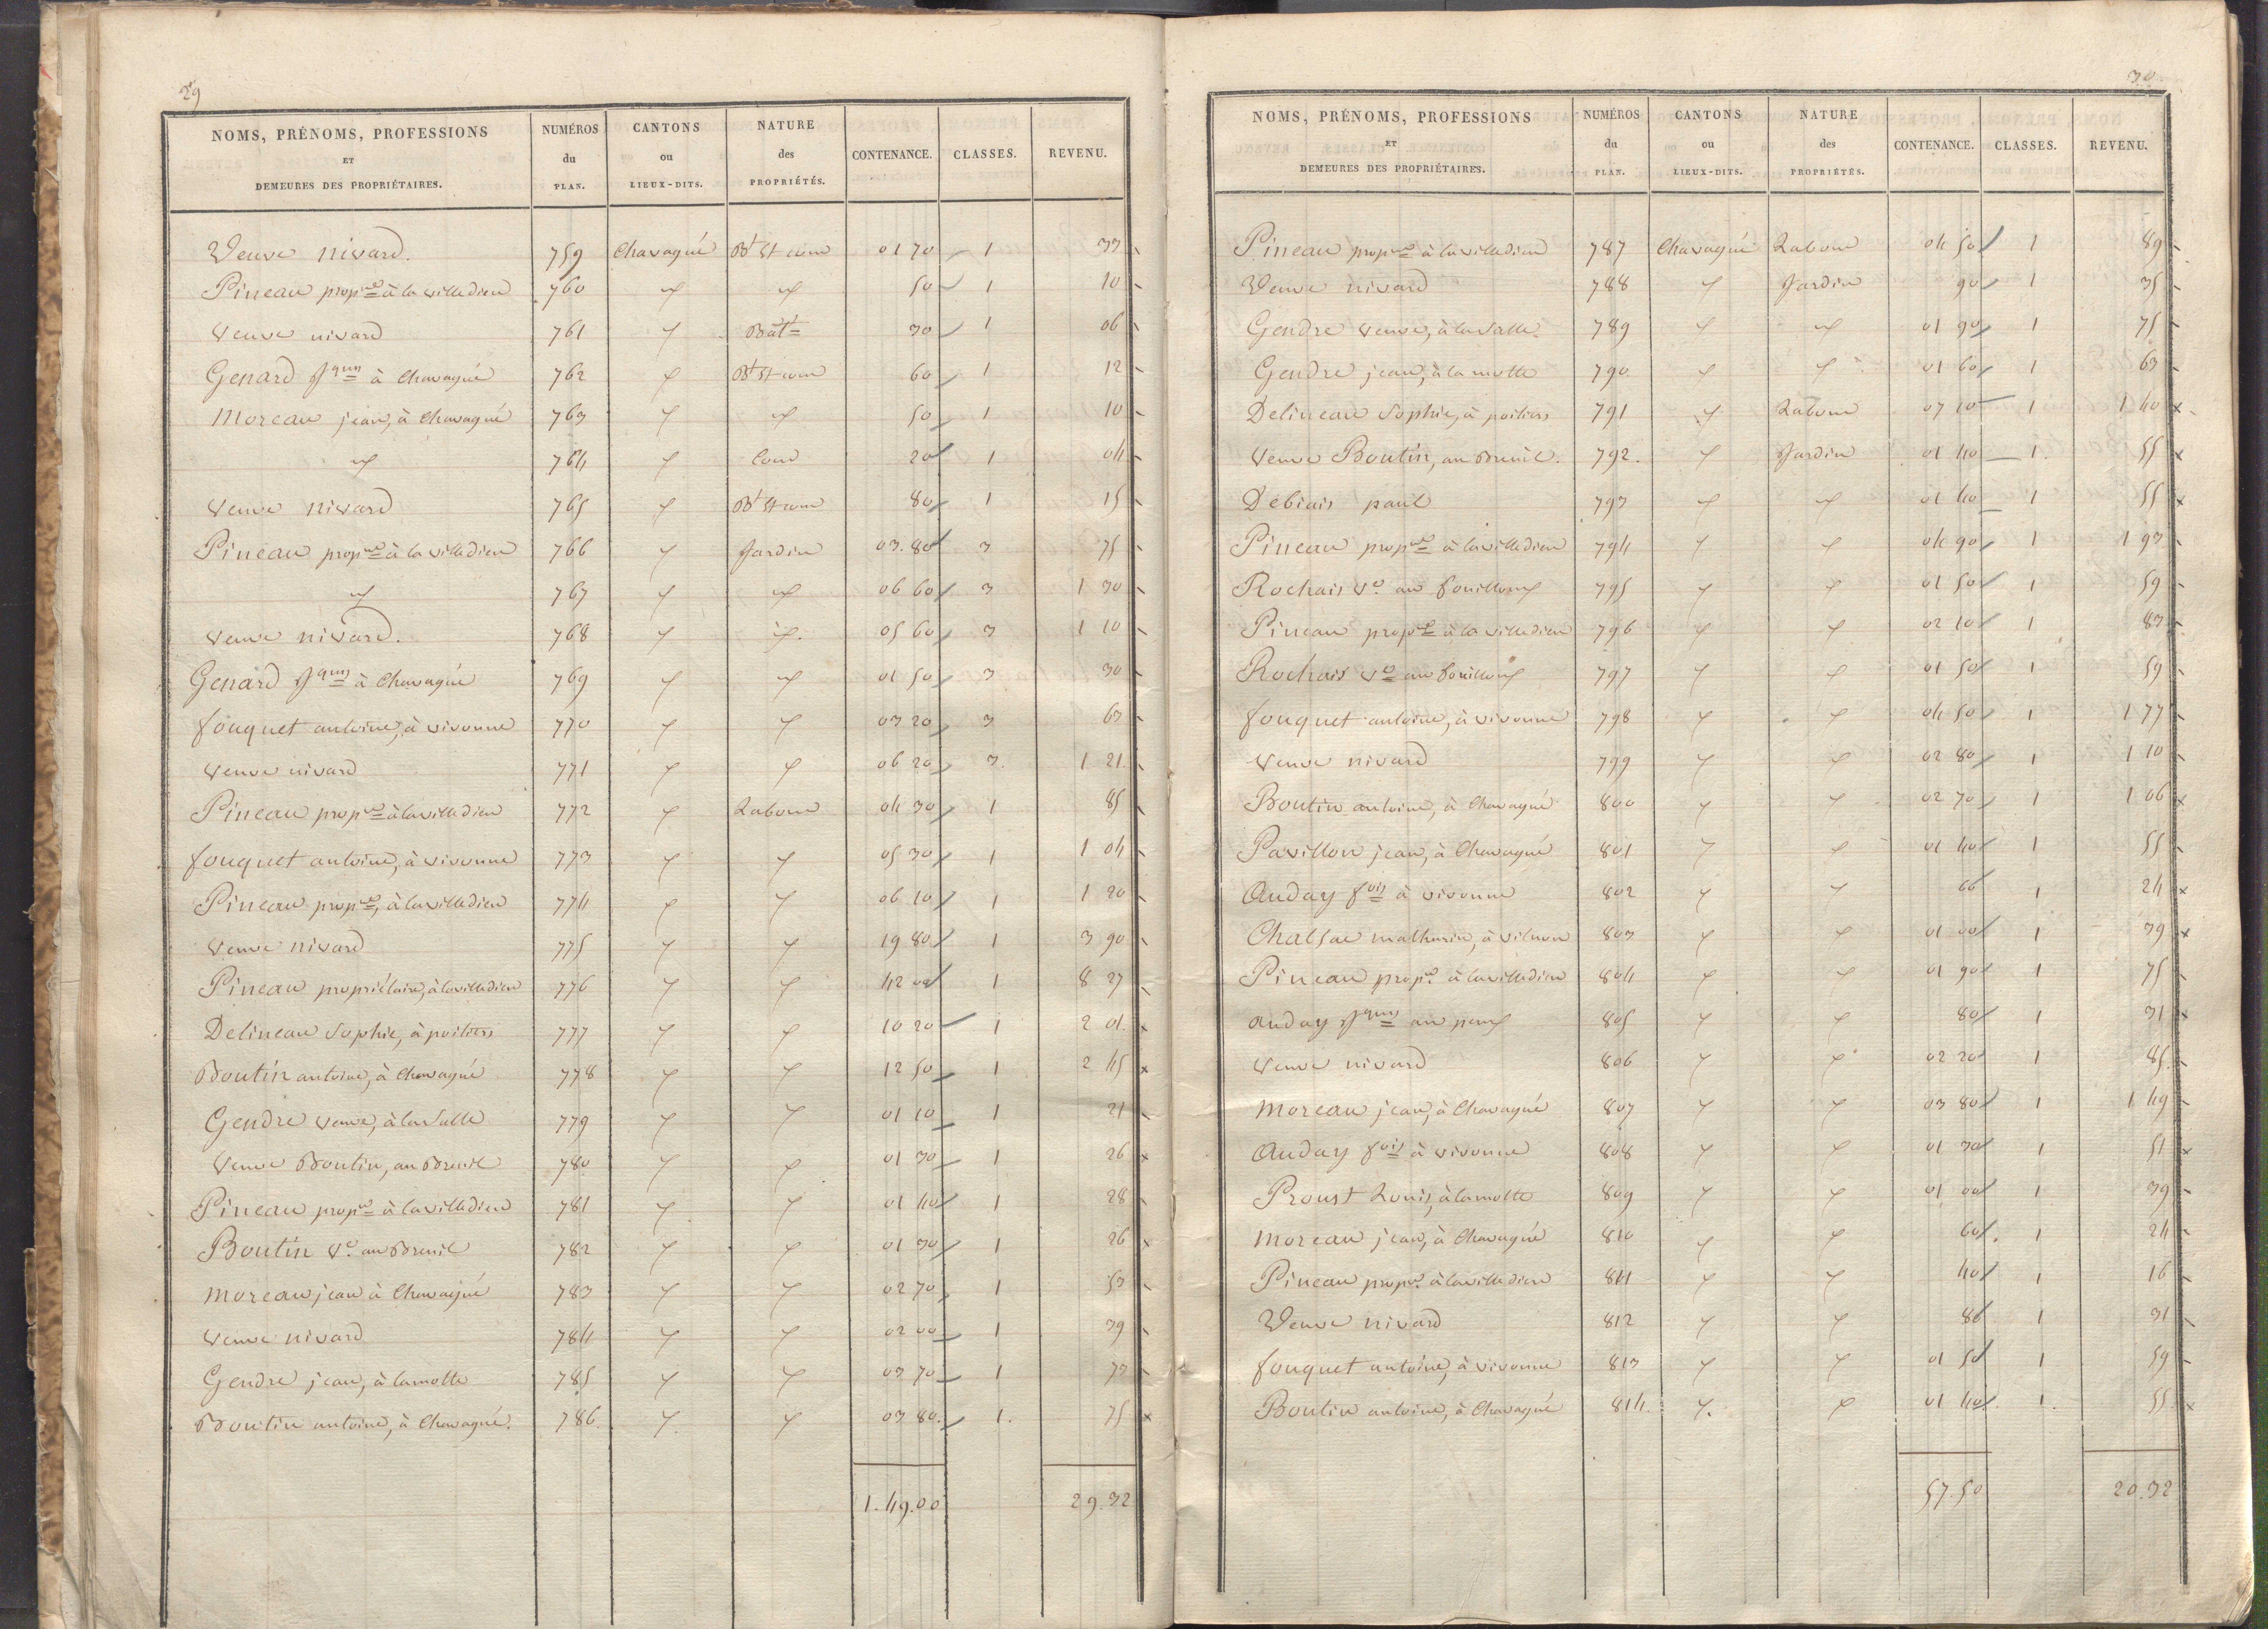 29
NOMS, PRÉNOMS, PROFESSIONS ET DEMEURES DES PROPRIÉTAIRES. NUMÉROS du PLAN. CANTONS ou LIEUX-DITS. NATURE des PROPRIÉTÉS. CONTENANCE. CLASSES. REVENU.
Veuve nivard. 759 Chavagné Bt et cour 01 70 1 33
Pineau propre à la villedieu 760 " " 50 1 10
Veuve nivard 761 " Bât 30 1 06
Genard Jques à Chavagné 762 " Bt et cour 60 1 12
Moreau jean, à Chavagné 763 " " 50 1 10
" 764 " Cour 20 1 04
Veuve nivard 765 " Bt et cour 80 1 15
Pineau propre à la villedieu 766 " Jardin 03.80 3 75
" 767 " " 06 60 3 1 30
Veuve nivard. 768 " " 05 60 3 1 10
Genard Jques à Chavagné 769 " " 01 50 3 30
fouquet antoine, à vivonne 770 " " 03 20 3 63
Veuve nivard 771 " " 06 20 3. 1 21.
Pineau propre à la villedieu 772 " Labour 04 30 1 85
fouquet antoine, à vivonne 773 " " 05 30 1 1 04
Pineau propre, à la villedieu 774 " " 06 10 1 1 20
Veuve nivard 775 " " 19 80 1 3 90
Pineau propriétaire, à la villedieu 776 " " 42 00 1 8 27
Delineau Sophie, à poitiers 777 " " 10 20 1 2 01.
Boutin antoine, à Chavagné 778 " " 12 50 1 2 45
Gendre veuve, à la Salle 779 " " 01 10 1 21
Veuve Boutin, au Breuil 780 " " 01 30 1 26
Pineau propre à la villedieu 781 " " 01 40 1 28
Boutin Ve au Breuil 782 " " 01 30 1 26
Moreau jean à Chavagné 783 " " 02 70 1 53
Veuve nivard 784 " " 02 00 1 39
Gendre jean, à la motte 785 " " 03 70 1 73
Boutin antoine, à Chavagné. 786. " " 03 80. 1. 75
1.49.00 29.32
30
NOMS, PRÉNOMS, PROFESSIONS ET DEMEURES DES PROPRIÉTAIRES. NUMÉROS du PLAN. CANTONS ou LIEUX-DITS. NATURE des PROPRIÉTÉS. CONTENANCE. CLASSES. REVENU.
Pineau propre à la villedieu 787 Chavagné Labour 04 50 1 89
Veuve nivard 788 " Jardin 90 1 35
Gendre veuve, à la Salle. 789 " " 01 90 1 75
Gendre jean, à la motte 790 " " 01 60 1 63
Delineau Sophie, à poitiers 791 " Labour 07 10 1 1 40
Veuve Boutin, au Breuil. 792. " Jardin 01 40 1. 55
Debiais paul 793 " " 01 40 1 55
Pineau propre à la villedieu 794 " " 04 90 1 1 93
Rochais Ve au fouilloux 795 " " 01 50 1 59
Pineau propre à la villedieu 796 " " 02 10 1 83
Rochais Ve au fouilloux 797 " " 01 50 1 59
fouquet antoine, à vivonne 798 " " 04 50 1 1 77
Veuve nivard 799 " " 02 80 1 1 10
Boutin antoine, à Chavagné 800 " " 02 70 1 1 06
Pavillon jean, à Chavagné 801 " " 01 40 1 55
Auday fois à vivonne 802 " " 60 1 24
mathurin, à 803 " " 01 00 1 39
Pineau propre à la villedieu 804 " " 01 90 1 75
Auday Jques au 805 " " 80 1 31
Veuve nivard 806 " " 02 20 1 85.
Moreau jean, à Chavagné 807 " " 03 80 1 1 49
Auday fois à vivonne 808 " " 01 30 1 51
Proust Louis, à la motte 809 " " 01 00 1 39
Moreau jean, à Chavagné 810 " " 60. 1 24
Pineau propre à la villedieu 811 " " 40 1 16
Veuve nivard 812 " " 80 1 31
fouquet antoine, à vivonne 813 " " 01 50 1 59
Boutin antoine, à Chavagné 814. " " 01 40 1. 55
57.50 20.32